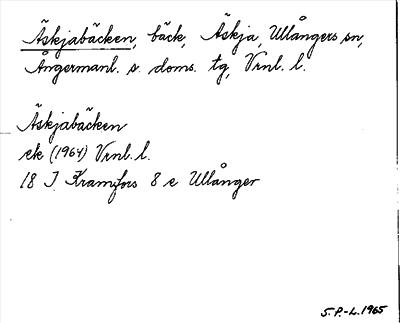 Äskjabäcken, bäck, Äskja, Ullångers sn,
Ångermanl. s. doms. tg, Vrnl. l.
Äskjabäcken
ek (1964) Vrnl. l.
18 J Kramfors 8 e Ullånger
S.P.-L. 1965